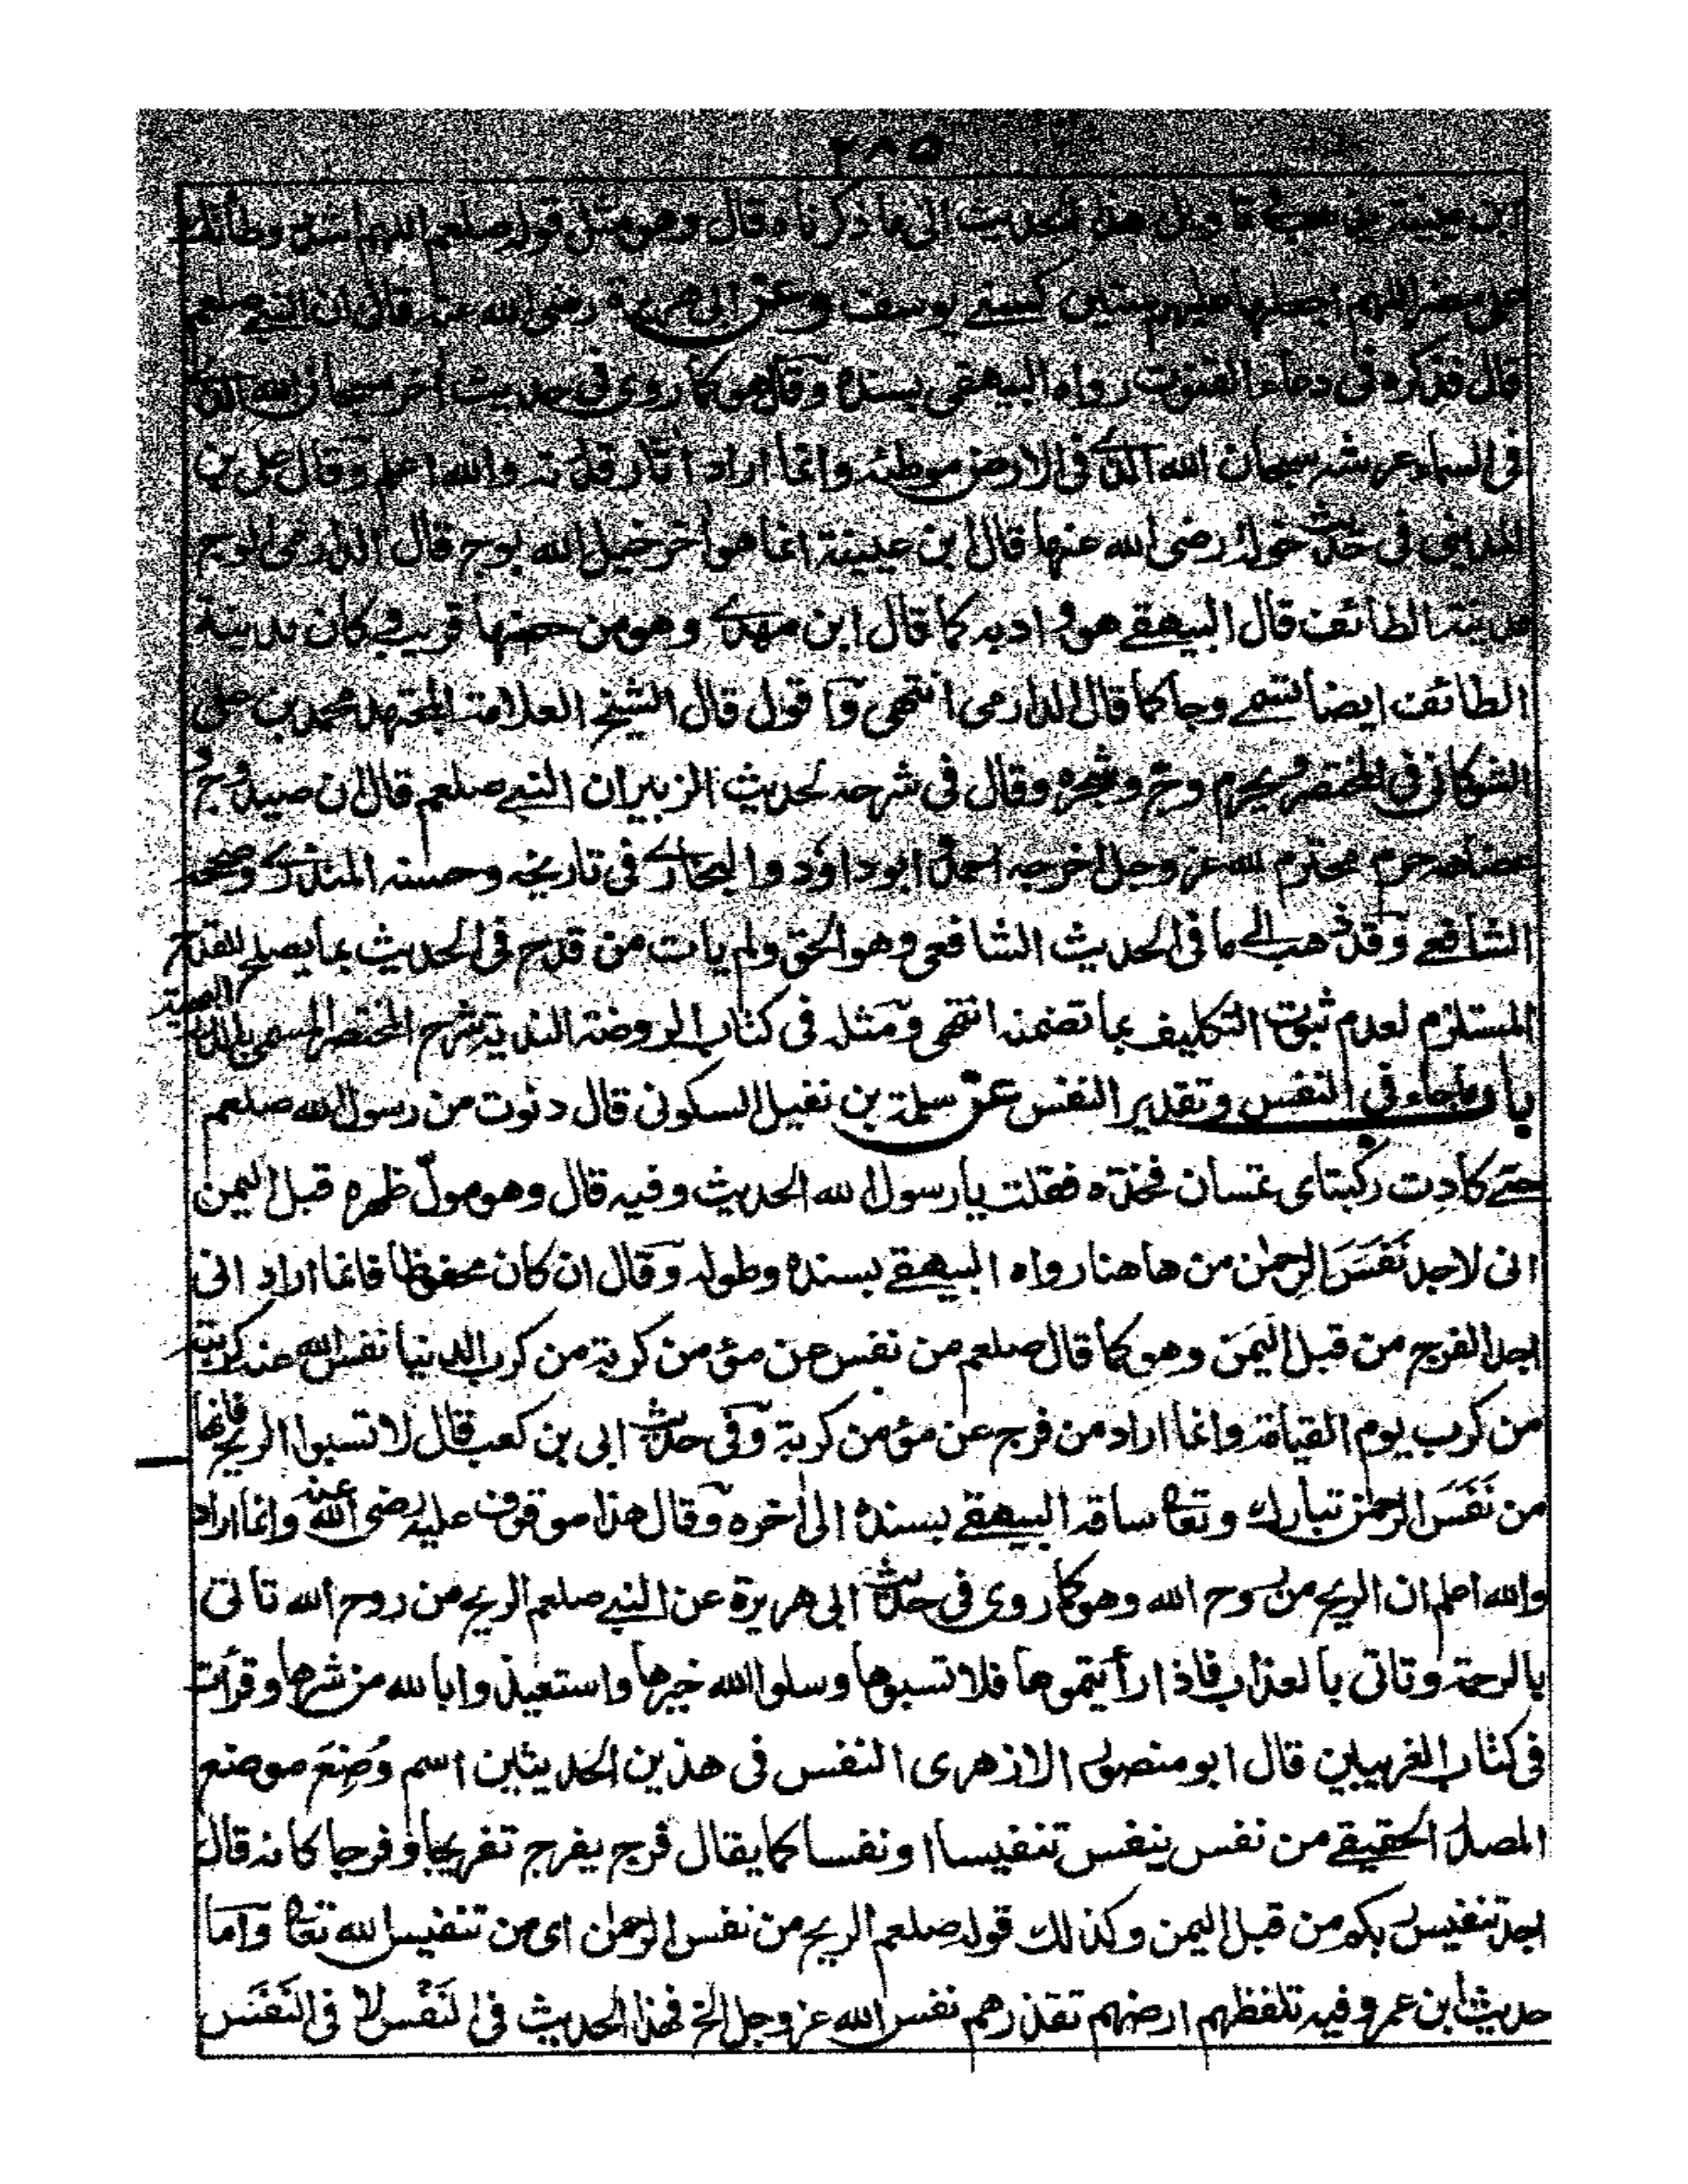 ٢٨٥
الى ما ذكرناه قال وهو مثل قوله صلعم اللهم اشدد وطأتك
على مضر اللهم اجعلها عليهم سنين كسنے يوسف وعن ابى هريرة رضى الله عنه قال ان النبے صلعم
قال فذكره فى دعاء القنوت رواه البيهقى بسنده وقال هو كما روى فى حديث اخر سبحان الله الذے
فى السماء عرشه سبحان الله الذے فى الارض موطئه وانما اراد اثار قدرته والله اعلم وقال على بن
المدينى فى حديث خولة رضى الله عنها قال ابن عيينة انما هو اخر خيل الله بوج قال الدارمى الوج
مدينة الطائف قال البيهقے هو واد به كما قال ابن مهدے وهو من حصنها قريب وكان مدينة
الطائف ايضا تسمے وجا كما قال الدارمى انتهى وآ قول قال الشيخ العلامة المجتهد محمد بن على
الشوكانى فى المختصر ويحرم وج وشجره وقال فى شرحه لحديث الزبير ان النبے صلعم قال ان صيد وج
وعضاهه حرم محترم لله عز وجل اخرجه احمد و ابو داؤد والبخارے فى تاريخه وحسنه المنذرے وصححه
الشافعے وقد ذهب الے ما فى الحديث الشافعى وهو الحق ولم يات من قدح فى الحديث بما يصلح للقدح
المستلزم لعدم ثبوت التكليف بما تضمنه انتهى ومثله فى كتاب الروضة الندية شرح المختصر المسمى بالدرر البهية
باب ماجاء فى النفس وتقدير النفس عن سلمة بن نفيل السكونى قال دنوت من رسول الله صلعم
حتے كادت ركبتاى تمسان فخذه فقلت يا رسول الله الحديث وفيه قال وهو مول ظهره قبل اليمن
انى لاجد نَفَسَ الرحمٰن من ها هنا رواه البيهقے بسنده وطوله وقال ان كان محفوظا فانما اراد انى
اجد الفرج من قبل اليمن وهو كما قال صلعم من نفس عن مؤمن كربة من كرب الدنيا نفس الله عنه كربة
من كرب يوم القيامة وانما اراد من فرج عن مؤمن كربة وفى حديث ابى بن كعب قال لا تسبوا الريح فانها
من نَفَسَ الرحمٰن تبارك وتعا ساقه البيهقے بسنده الى اخره وقال هذا موقوف عليه رضى الله عنه وانما اراد
والله اعلم ان الريح من روح الله وهو كما روى فى حديث ابى هريرة عن النبے صلعم الريح من روح الله تاتى
بالرحمة وتاتى بالعذاب فاذا رأيتموها فلا تسبوها وسلوا الله خيرها واستعيذوا بالله من شرها وقرأت
فى كتاب الغريبين قال ابو منصور الازهرى النفس فى هذين الحديثين اسم وُضِعَ موضع
المصدر الحقيقے من نفس ينفس تنفيسا او نفسا كما يقال فرج يفرج تفريجا وفرجا كانه قال
اجد تنفيس ربكم من قبل اليمن وكذلك قوله صلعم الريح من نفس الرحمٰن اى من تنفيس الله تعا وآما
حديث ابن عمر وفيه تلفظهم ارضهم تقذرهم نفس الله عز وجل الخ فهذا الحديث فى النَفْس لا فى النَفَس